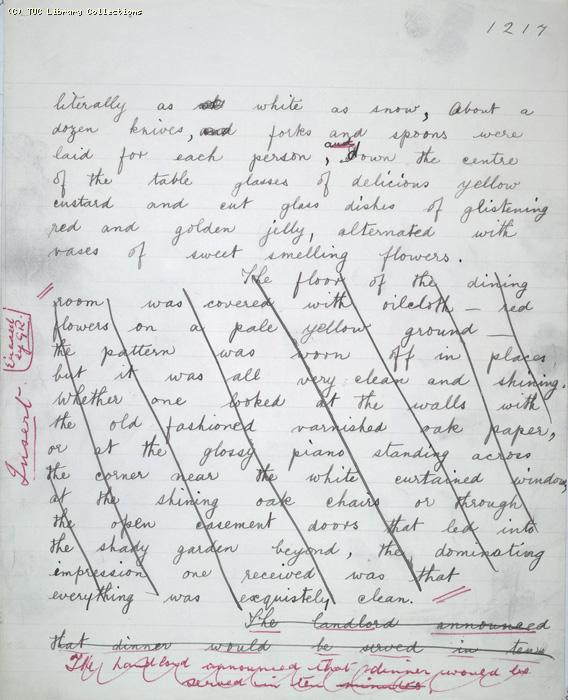 (C) TUC Library Collections
1217
literally as white as snow, About a
dozen knives, and forks and spoons were
laid for each person, and Down the centre
of the table glasses of delicious yellow
custard and cut glass dishes of glistening
red and golden jelly, alternated with
vases of sweet smelling flowers.
The floor of the dining
room was covered with oilcloth — red
flowers on a pale yellow ground —
the pattern was worn off in places
but it was all very clean and shining.
Whether one looked at the walls with
the old fashioned varnished oak paper,
or at the glossy piano standing across
the corner near the white curtained window,
at the shining oak chairs or through
the open casement doors that led into
the shady garden beyond, the dominating
impression one received was that
everything was exquisitely clean.
The landlord announced
that dinner would be served in ten
The landlord announced that dinner would be
served in ten minutes
Insert.
Erased
by G.R.